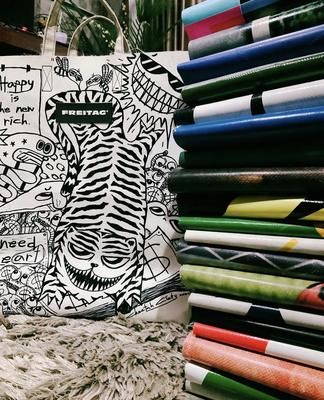 Happy
is
the new
rich.
FREITAG
need